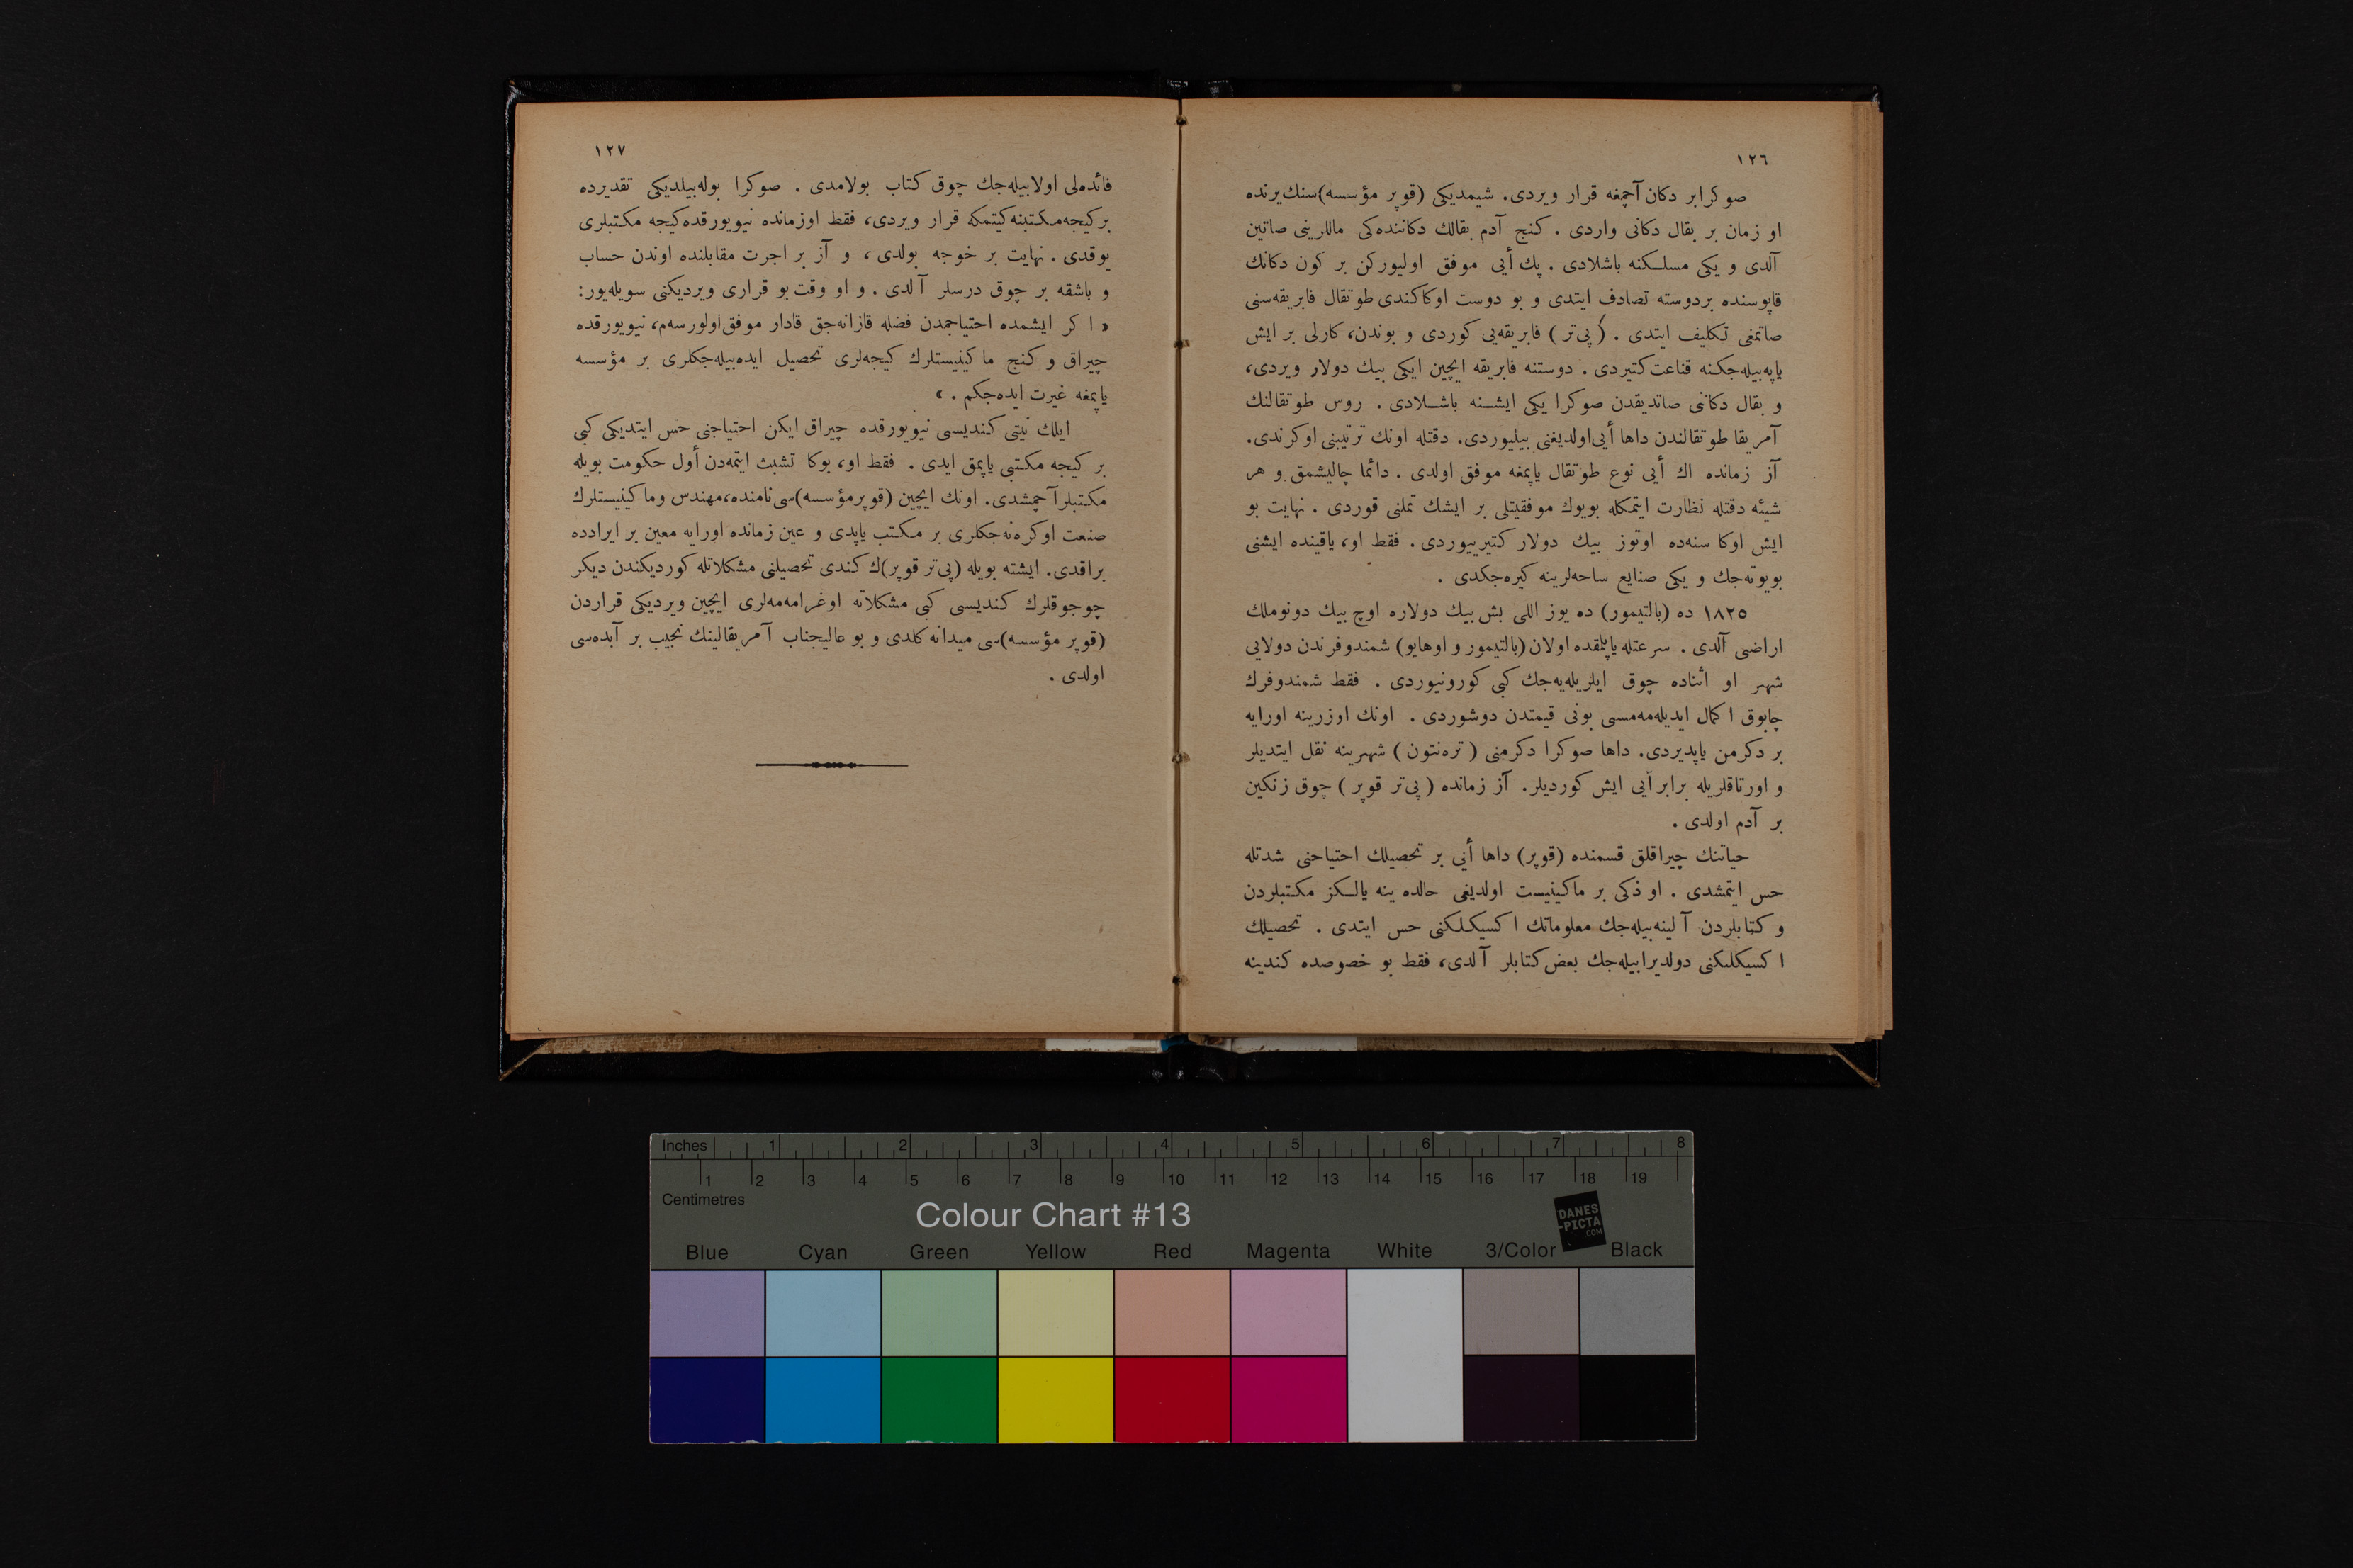 ١٢٦
صوكرا بر دكان آچمغه قرار ويردى. شيمديكى (قوپر مؤسسه)سنك يرنده
او زمان بر بقال دكانى واردى . كنج آدم بقالك دكاننده‌كى ماللرينى صاتين
آلدى و يكى مسلكنه باشلادى . پك أيى موفق اوليوركن بر كون دكانك
قاپوسنده بردوسته تصادف ايتدى و بو دوست اوكا كندى طوتقال فابريقه‌سنى
صاتمغى تكليف ايتدى . (پى‌تر) فابريقه‌يى كوردى و بوندن، كارلى بر ايش
ياپه‌بيله‌جكنه قناعت كتيردى . دوستنه فابريقه ايچين ايكى بيك دولار ويردى،
و بقال دكاننى صاتديقدن صوكرا يكى ايشنه باشلادى . روس طوتقالنك
آمريقا طوتقالندن داها أيى اولديغنى بيليوردى. دقتله اونك ترتيبنى اوكرندى.
آز زمانده اك أيى نوع طوتقال ياپمغه موفق اولدى . دائما چاليشمق و هر
شيئه دقتله نظارت ايتمكله بويوك موفقيتلى بر ايشك تملنى قوردى . نهايت بو
ايش اوكا سنه‌ده اوتوز بيك دولار كتيرييوردى . فقط او، ياقينده ايشنى
بويوته‌جك و يكى صنايع ساحه‌لرينه كيره‌جكدى .
١٨٢٥ ده (بالتيمور) ده يوز اللى بش بيك دولاره اوچ بيك دونوملك
اراضى آلدى . سرعتله ياپيلمقده اولان (بالتيمور و اوهايو) شمندوفرندن دولايى
شهر او أثناده چوق ايلريله‌يه‌جك كبى كورونيوردى . فقط شمندوفرك
چابوق اكمال ايديله‌مه‌مسى بونى قيمتدن دوشوردى . اونك اوزرينه اورايه
بر دكرمن ياپديردى. داها صوكرا دكرمنى (تره‌نتون) شهرينه نقل ايتديلر
و اورتاقلريله برابر آيى ايش كورديلر. آز زمانده (پى‌تر قوپر) چوق زنكين
بر آدم اولدى .
حياتنك چيراقلق قسمنده (قوپر) داها أيى بر تحصيلك احتياجنى شدتله
حس ايتمشدى . او ذكى بر ماكينيست اولديغى حالده ينه يالكز مكتبلردن
و كتابلردن آلينه‌بيله‌جك معلوماتك اكسيكلكنى حس ايتدى . تحصيلك
اكسيكلكنى دولديرابيله‌جك بعض كتابلر آلدى، فقط بو خصوصده كندينه
١٢٧
فائده‌لى اولابيله‌جك چوق كتاب بولامدى . صوكرا بوله‌بيلديكى تقديرده
بر كيجه مكتبنه كيتمكه قرار ويردى، فقط اوزمانده نيويورقده كيجه مكتبلرى
يوقدى . نهايت بر خوجه بولدى، و آز بر اجرت مقابلنده اوندن حساب
و باشقه بر چوق درسلر آلدى . و او وقت بو قرارى ويرديكنى سويله‌يور:
« اكر ايشمده احتياجمدن فضله قازانه‌جق قادار موفق اولورسه‌م، نيويورقده
چيراق و كنج ماكينيستلرك كيجه‌لرى تحصيل ايده‌بيله‌جكلرى بر مؤسسه
ياپمغه غيرت ايده‌جكم . »
ايلك نيتى كنديسى نيويورقده چيراق ايكن احتياجنى حس ايتديكى كبى
بر كيجه مكتبى ياپمق ايدى . فقط او، بوكا تشبث ايتمه‌دن أول حكومت بويله
مكتبلر آچمشدى. اونك ايچين (قوپر مؤسسه)سى نامنده، مهندس وماكينيستلرك
صنعت اوكره‌نه‌جكلرى بر مكتب ياپدى و عين زمانده اورايه معين بر ايرادده
براقدى. ايشته بويله (پى‌تر قوپر)ك كندى تحصيلنى مشكلاتله كورديكندن ديكر
چوجوقلرك كنديسى كبى مشكلاته اوغرامه‌مه‌لرى ايچين ويرديكى قراردن
(قوپر مؤسسه)سى ميدانه كلدى و بو عاليجناب آمريقالينك نجيب بر آبده‌سى
اولدى .
Inches 1 2 3 4 5 6 7 8
1 2 3 4 5 6 7 8 9 10 11 12 13 14 15 16 17 18 19
Centimetres
Colour Chart #13
DANES
-PICTA
.COM
Blue Cyan Green Yellow Red Magenta White 3/Color Black